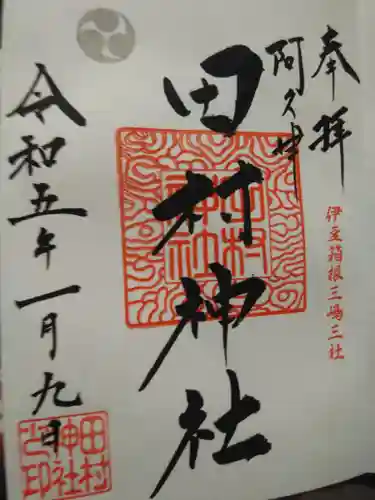 奉拝
阿久津
伊豆箱根三嶋三社
田村神社
田村神社
令和五年一月九日
田村
神社
之印